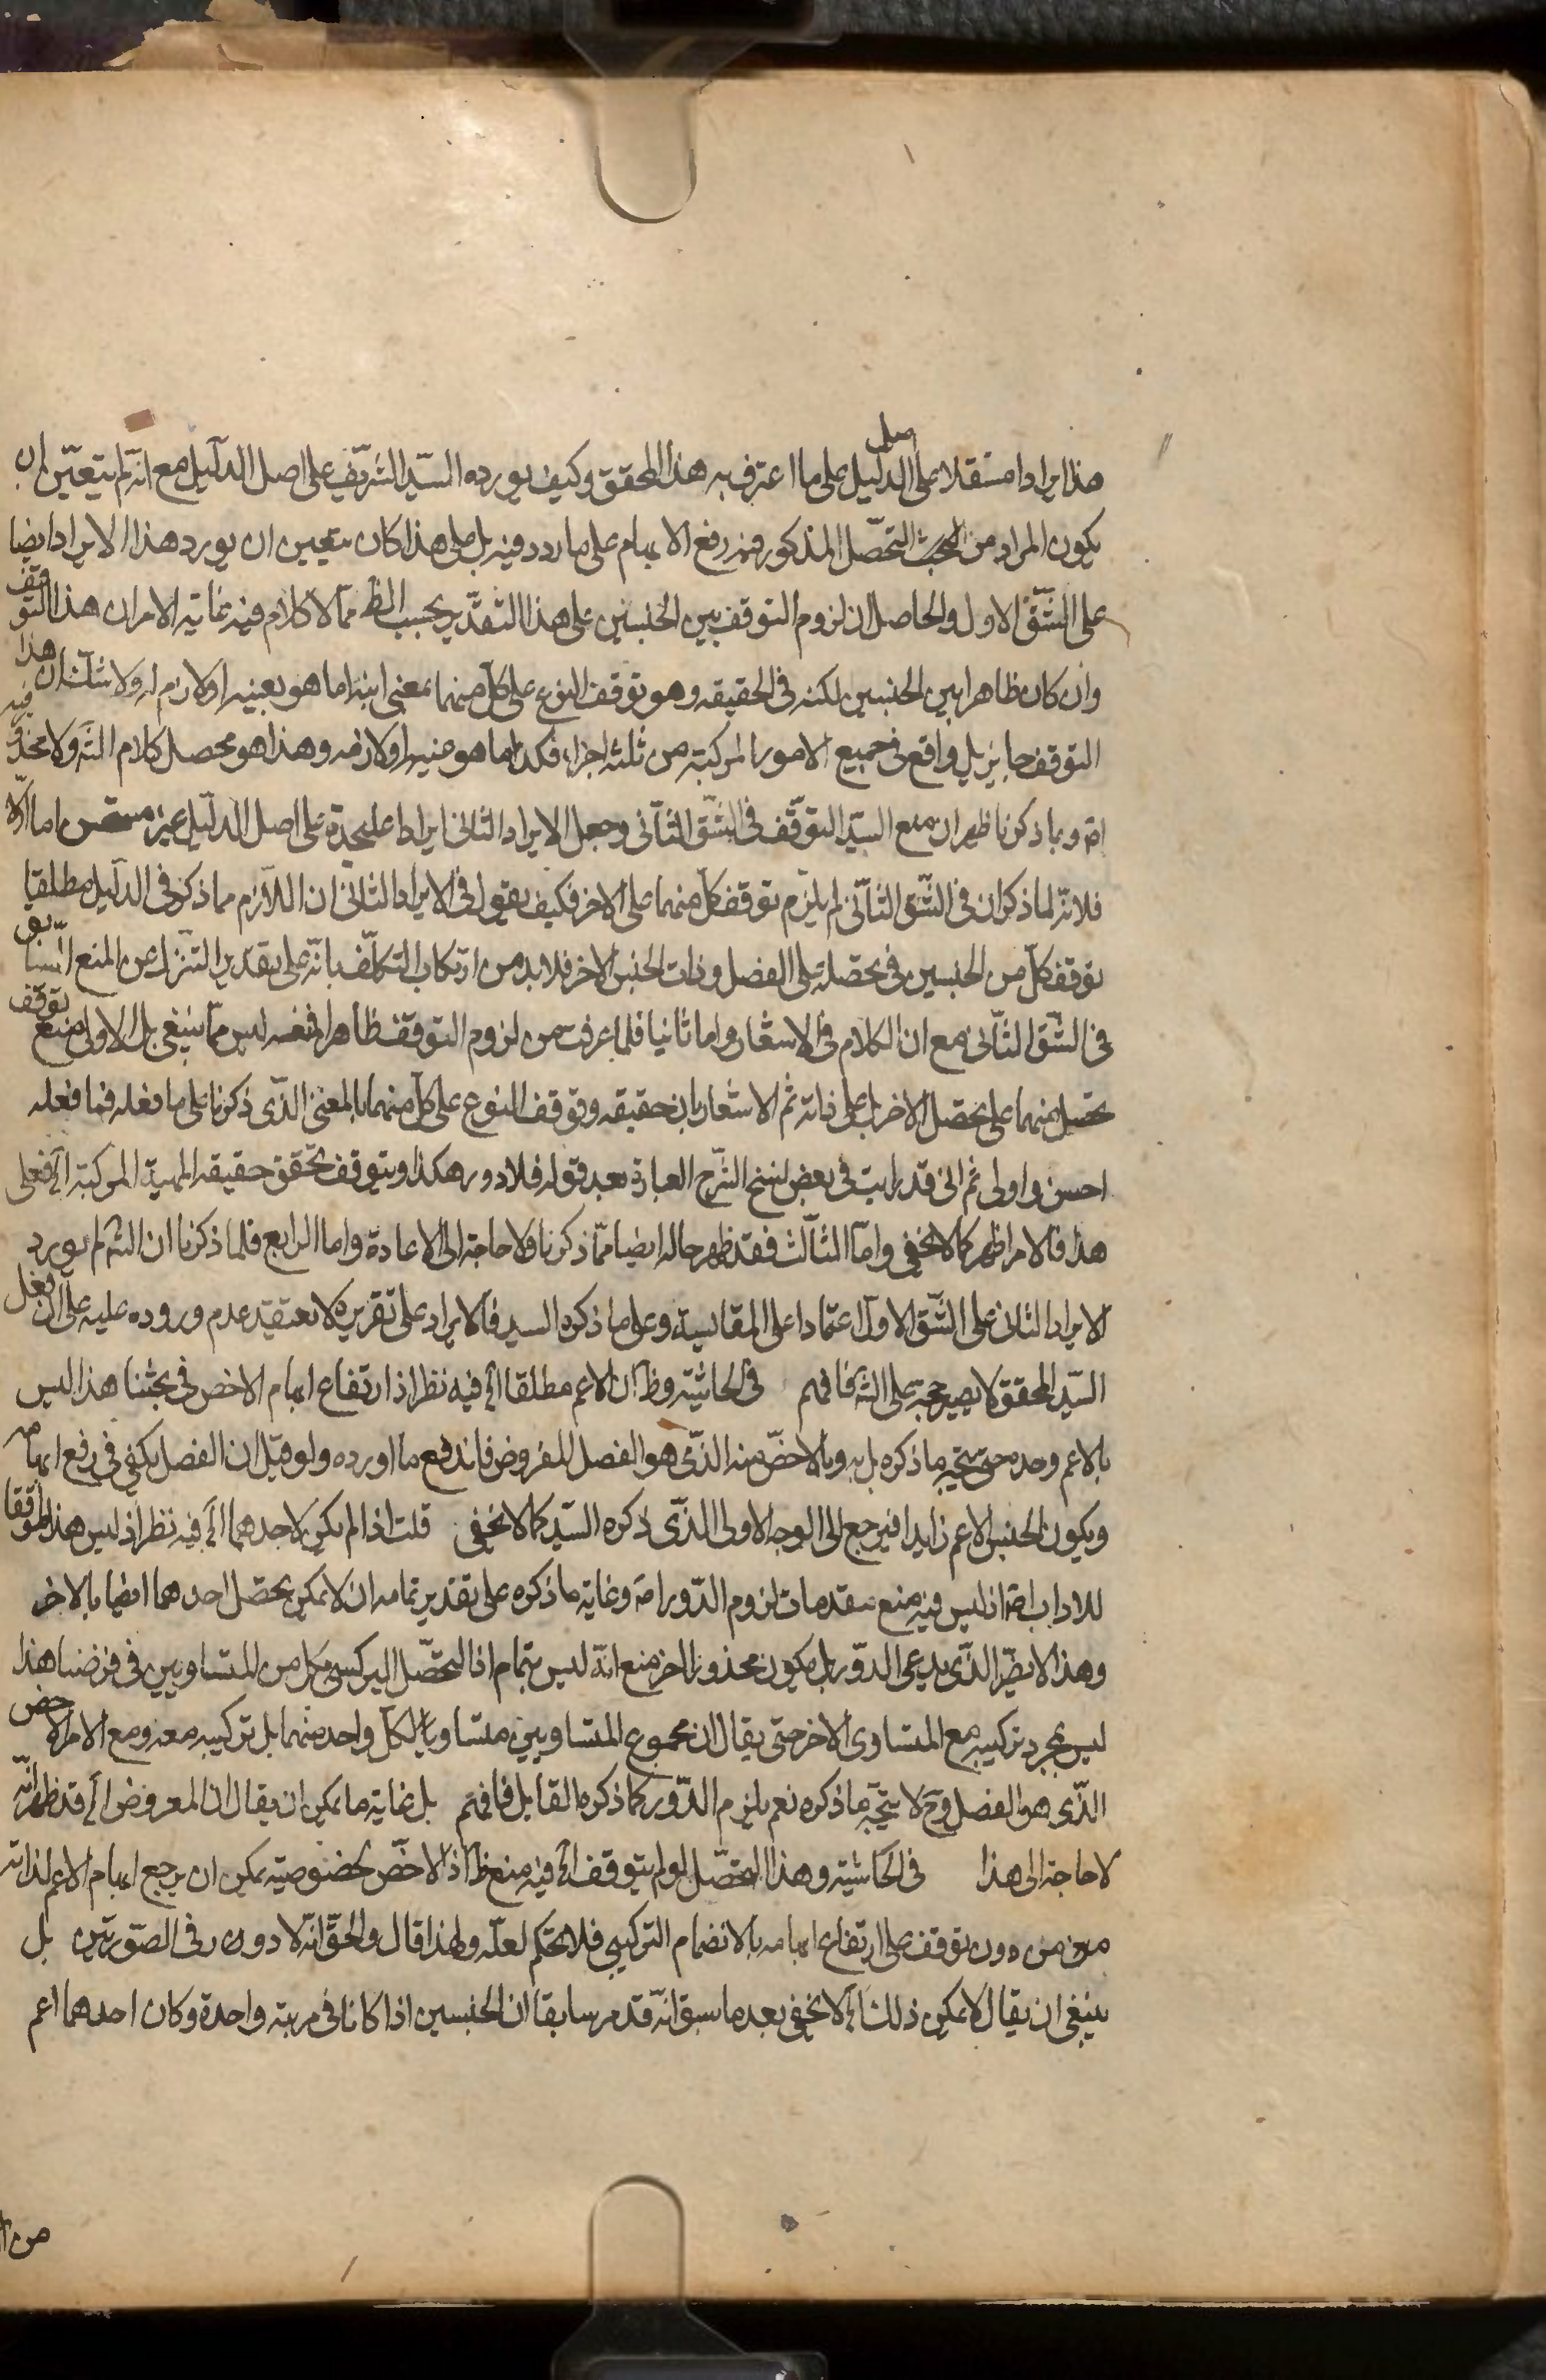 هذا ايرادا مستقلا على اصل الدليل على ما اعترف به هذا المحقق وكيف يورده السيد الشريف على اصل الدليل مع انه لم يتعين ان
يكون المراد من التحصّل المذكور فيه رفع الابهام على ما ردد فيه بل على هذا كان يتعين ان يورد هذا الايراد ايضا
على الشّقّ الاول والحاصل ان لزوم التوقف بين الجنسين على هذا التقدير بحسب الظ مما لا كلام فيه غاية الامر ان هذا التوقف
وان كان ظاهرا بين الجنسين لكنه في الحقيقه وهو توقف النوع على كل منهما بمعنى انه اما هو بعينه او لازم له ولا شك ان هذا
التوقف جايز بل واقع في جميع الامور المركبة من ثلثه اجزاء فكذا ما هو منه او لازمه وهذا هو محصل كلام الش ولا محذور فيه
اصلا وبما ذكرنا ظهر ان منع السيد التوقّف في الشّق الثّاني وجعل الايراد الثاني ايرادا عليحدة على اصل الدليل غير اما اوّلا
فلانه لما ذكر ان في الشّق الثّاني لم يلزم توقف كل منهما على الاخر فكيف يقول في الايراد الثاني ان اللازم مما ذكر في الدليل مطلقا
توقف كل من الجنسين في تحصّله على الفصل وذات الجنس الاخر فلا بد من ارتكاب التكلّف بانّه على تقدير التنزل عن المنع السّابق
في الشّق الثّاني مع ان الكلام في الاشعار واما ثانيا فلما عرفت من لزوم التوقف ظاهرا فمنعه ليس مما ينبغي بل الاولى منع توقف
تحصل منهما على تحصّل الاخر بل على ذاته ثم الاشعار بان حقيقه وتوقف النوع على كل منهما بالمعنى الذّى ذكرنا على ما فعله فما فعله
احسن واولى ثم انى قد رايت في بعض نسخ الشّرح العبارة بعد قوله فلا دور هكذا ويتوقف تحقق حقيقه المهية المركبة الخ فعلى
هذا فالامر اظهر كما لا يخفى وامّا الثالث فقد ظهر حاله ايضا ممّا ذكرنا ولا حاجة الى الاعادة واما الرابع فلما ذكرنا ان الش لم يورد
الايراد الثاني على الشّق الاول اعتمادا على المقايسة وعلى ما ذكره السيد فالايراد على تقريره لا يعتقد عدم وروده عليه على ان فعل
السّيد المحقق لا يصير حجة على الش فافهم في الحاشية وظ ان الاعم مطلقا الخ فيه نظر اذ ارتفاع ابهام الاخص في بحثنا هذا ليس
بالاعم وحده حتى يتجه ما ذكره بل به وبالاخصّ منه الذّى هو الفصل المفروض فاندفع ما اورده ولو قيل ان الفصل يكفى في رفع ابهامه
ويكون الجنس الاعم زايدا فيرجع الى الوجه الاولى الذّى ذكره السّيد كما لا يخفى قلت اذا لم يكن لاحدهما الخ فيه نظر اذ ليس هذا موافقا
للاداب اصلا اذ ليس فيه منع مقدمات لزوم الدّور اصلا وغاية ما ذكره على تقدير تمامه ان لا يمكن تحصّل احدهما ايضا بالاخر
وهذا لا يضرّ الذّى يدعى الدّور بل يكون محذورا اخر منع انّه ليس بتمام اذ التحصّل التركيبى لكل من المتساويين في فرضنا هذا
ليس بمجرد تركيبه مع المتساوى الاخر حتى يقال ان مجموع المتساويين متساويا لكل واحد منهما بل تركيبه معه ومع الامر الاخص
الذّى هو الفصل وح لا يتجّه ما ذكره نعم يلزم الدّور كما ذكره القايل فافهم بل غاية ما يمكن ان يقال ان المعروض الخ قد ظهر انّه
لا حاجة الى هذا في الحاشية وهذا التحصّل لو لم يتوقف الخ فيه منع ظ اذ الاخصّ بخصوصيته يمكن ان يرجع ابهام الاعم لذاته
من دون توقف على ارتفاع ابهامه بالانضمام التركيبى فلا تحكم لعلّه ولهذا قال والحقّ انّه لا دور في الصّورتين بل
ينبغى ان يقال لا يمكن ذلك الخ لا يخفى بعد ما سبق انّه قد مر سابقا ان الجنسين اذا كانا في مرتبة واحدة وكان احدهما اعم